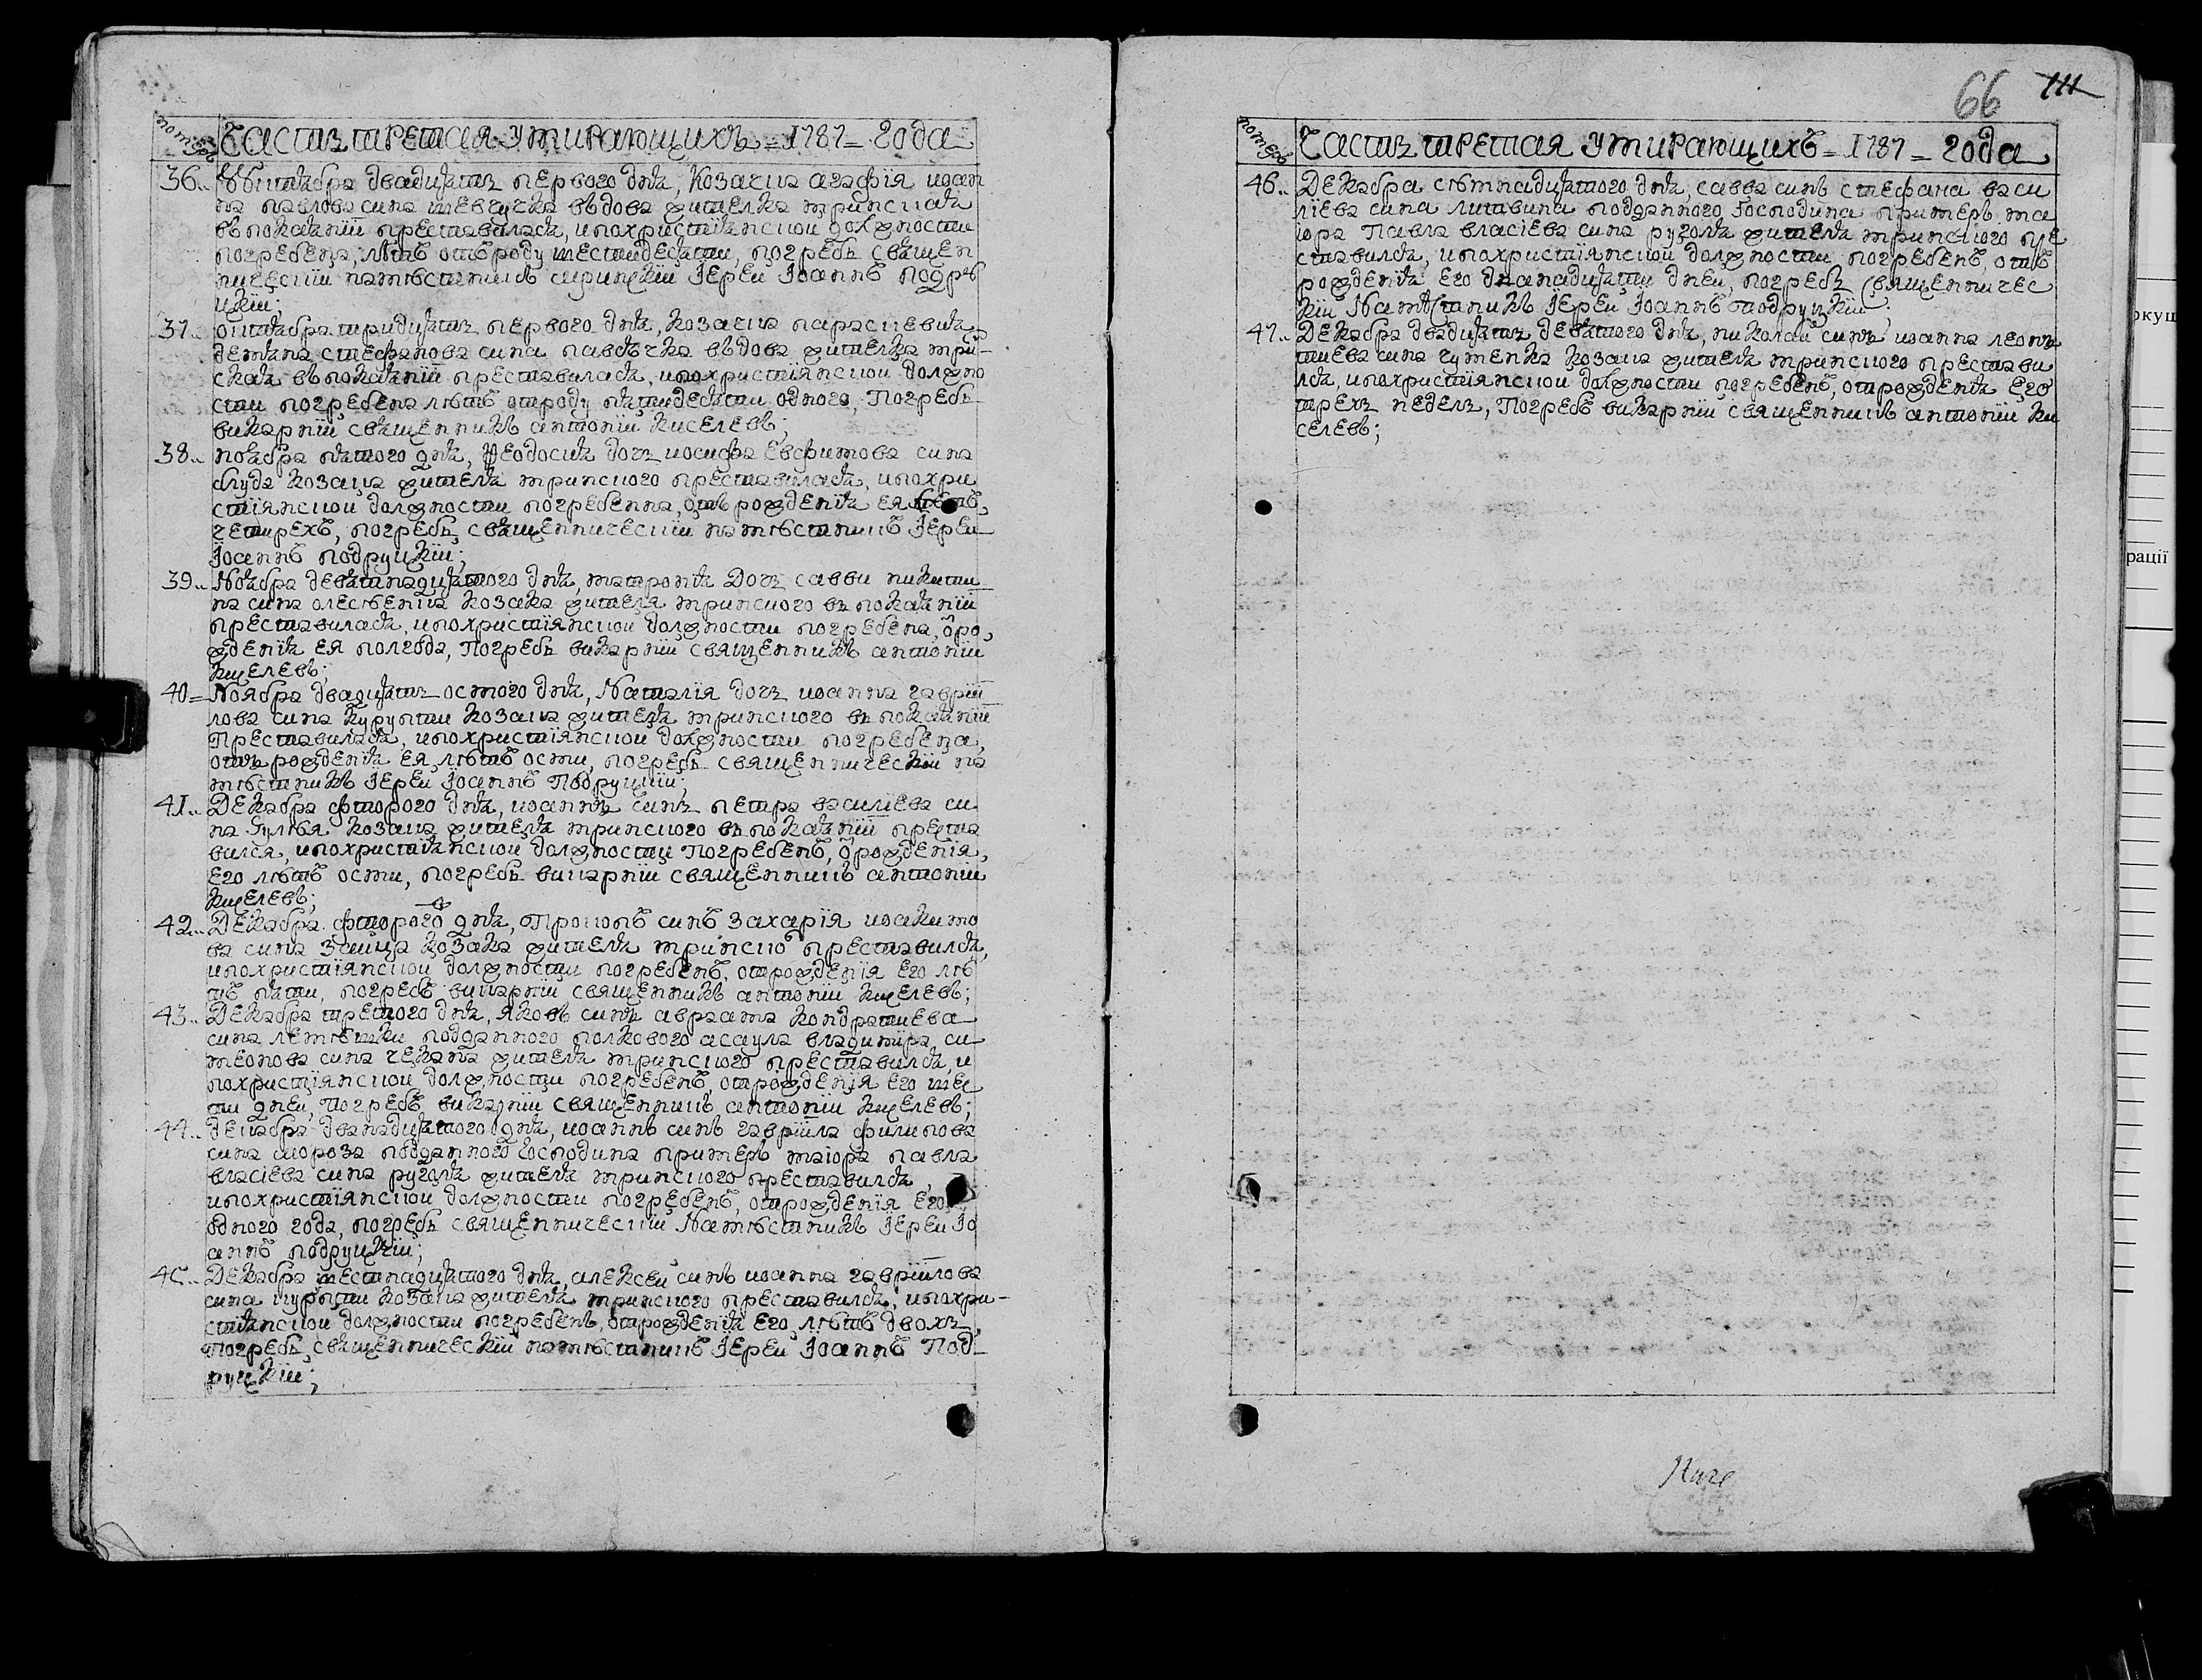 номеръ Часть третая умирающихъ = 1787 = года
36.. Октября двадцять первого дня, козачка агафія иоан
на павлова сина шевчука вдова жителка мринская
въ покаянїи преставилася, и похристіянской должности
погребена, лѣтъ отъ роду шестидесяти, погребъ священ
нический намѣстникъ мринский Іерей Іоаннъ подру
цкїй;
37.. октября тридцять первого дня, козачка параскевия
демяна стефанова сина вдова жителка мрин-
ская въ покаянїи преставилася, и похристїянской должно
сти погребена лѣтъ отроду пятидесяти одного, Погребъ
викарнїй священникъ антонїй киселевъ;
38.. ноября пятого дня, Ѳеодосия дочь иосифа Евфимова сина
козака жителя мринского преставилася, и похри
стіянской должности погребенна, отъ рожденїя ея лѣтъ
четирехъ, погребъ священнический намѣстникъ Іерей
Іоаннъ подруцкїй;
39.. Ноября девятнадцятого дня, матрония дочь савви никити
на сина козака жителя мринского въ покаянїи
преставилася, и похристїянской должности погребена, ѿ ро
жденїя ея полгода, Погребъ викарнїй священникъ антонїй
киселевъ;
40= Ноября двадцять осмого дня, Наталїя дочь иоанна гаврїи
лова сина курупти козака жителя мринского въ покаянїи
Преставилася, и похристїянской должности погребена,
отъ рожденїя ея лѣтъ осми, погребъ священнический на
мѣстникъ Іерей Іоаннъ Подруцкїй;
41.. Декабра фторого дня, иоаннъ синъ петра василїева си
на козака жителя мринского въ покаянїи преста
вился, и похристиянской должности Погребенъ, ѿ рожденїя
Его лѣтъ осми, погребъ викарнїй священникъ антонїй
киселевъ;
42.. Декабра фторого дня, Прокопъ синъ Захарїя иоакимо
ва сина Зайца козака жителя мринско преставился,
и похристїянской должности погребенъ, отрожденїя Его лѣ
тъ пяти, погребъ викарнїй священникъ антонїй киселевъ;
43.. Декабра третого дня, Яковъ синъ авраама кондратиева
сина подданного полкового асаула владимїра си
меонова сина чекана жителя мринского преставился, и
похристїянской должности погребенъ, отрожденїя Его шес
ти дней, Погребъ викарнїй священникъ антонїй киселевъ;
44.. декабра дванадцятого дня, иоаннъ синъ гаврїила филипова
сина мороза подданного господина примеръ маїора павла
власїева сина жителя мринского преставился,
и похристїянской должности погребенъ, отрожденїя Его
одного года, погребъ священнический Намѣстникъ Іерей Іо
аннъ подруцкїй;
45.. Декабра шестнадцятого дня, алексей синъ иоанна гаврїилова
сина курупти козака жителя мринского преставился, и похри-
стиянской должности погребенъ, отрожденїя Его лѣтъ двохъ,
Погребъ священнический намѣстникъ Іерей Іоаннъ Под
руцкїй;

66 111
номеръ Часть третая умирающихъ = 1787 = года
46.. Декабра семнадцятого дня, савва синъ стефана васи
лїева сина литвина подданного Господина примеръ ма
їора Павла власїева сина жителя мринского пре
ставился, и похристїянской должности погребенъ, отъ
рожденїя Его дванадцяти дней, погребъ священничес
кїй Намѣстникъ Іерей Іоаннъ Подруцкїй
47.. Декабра двадцять девятого дня, николай синъ иоанна леон
тиева сина гуменка козака жителя мринского престави
лся, и похристїянской должности погребенъ, отрожденїя Его
трехъ недель, Погребъ викарнїй священникъ антонїй ки
селевъ;